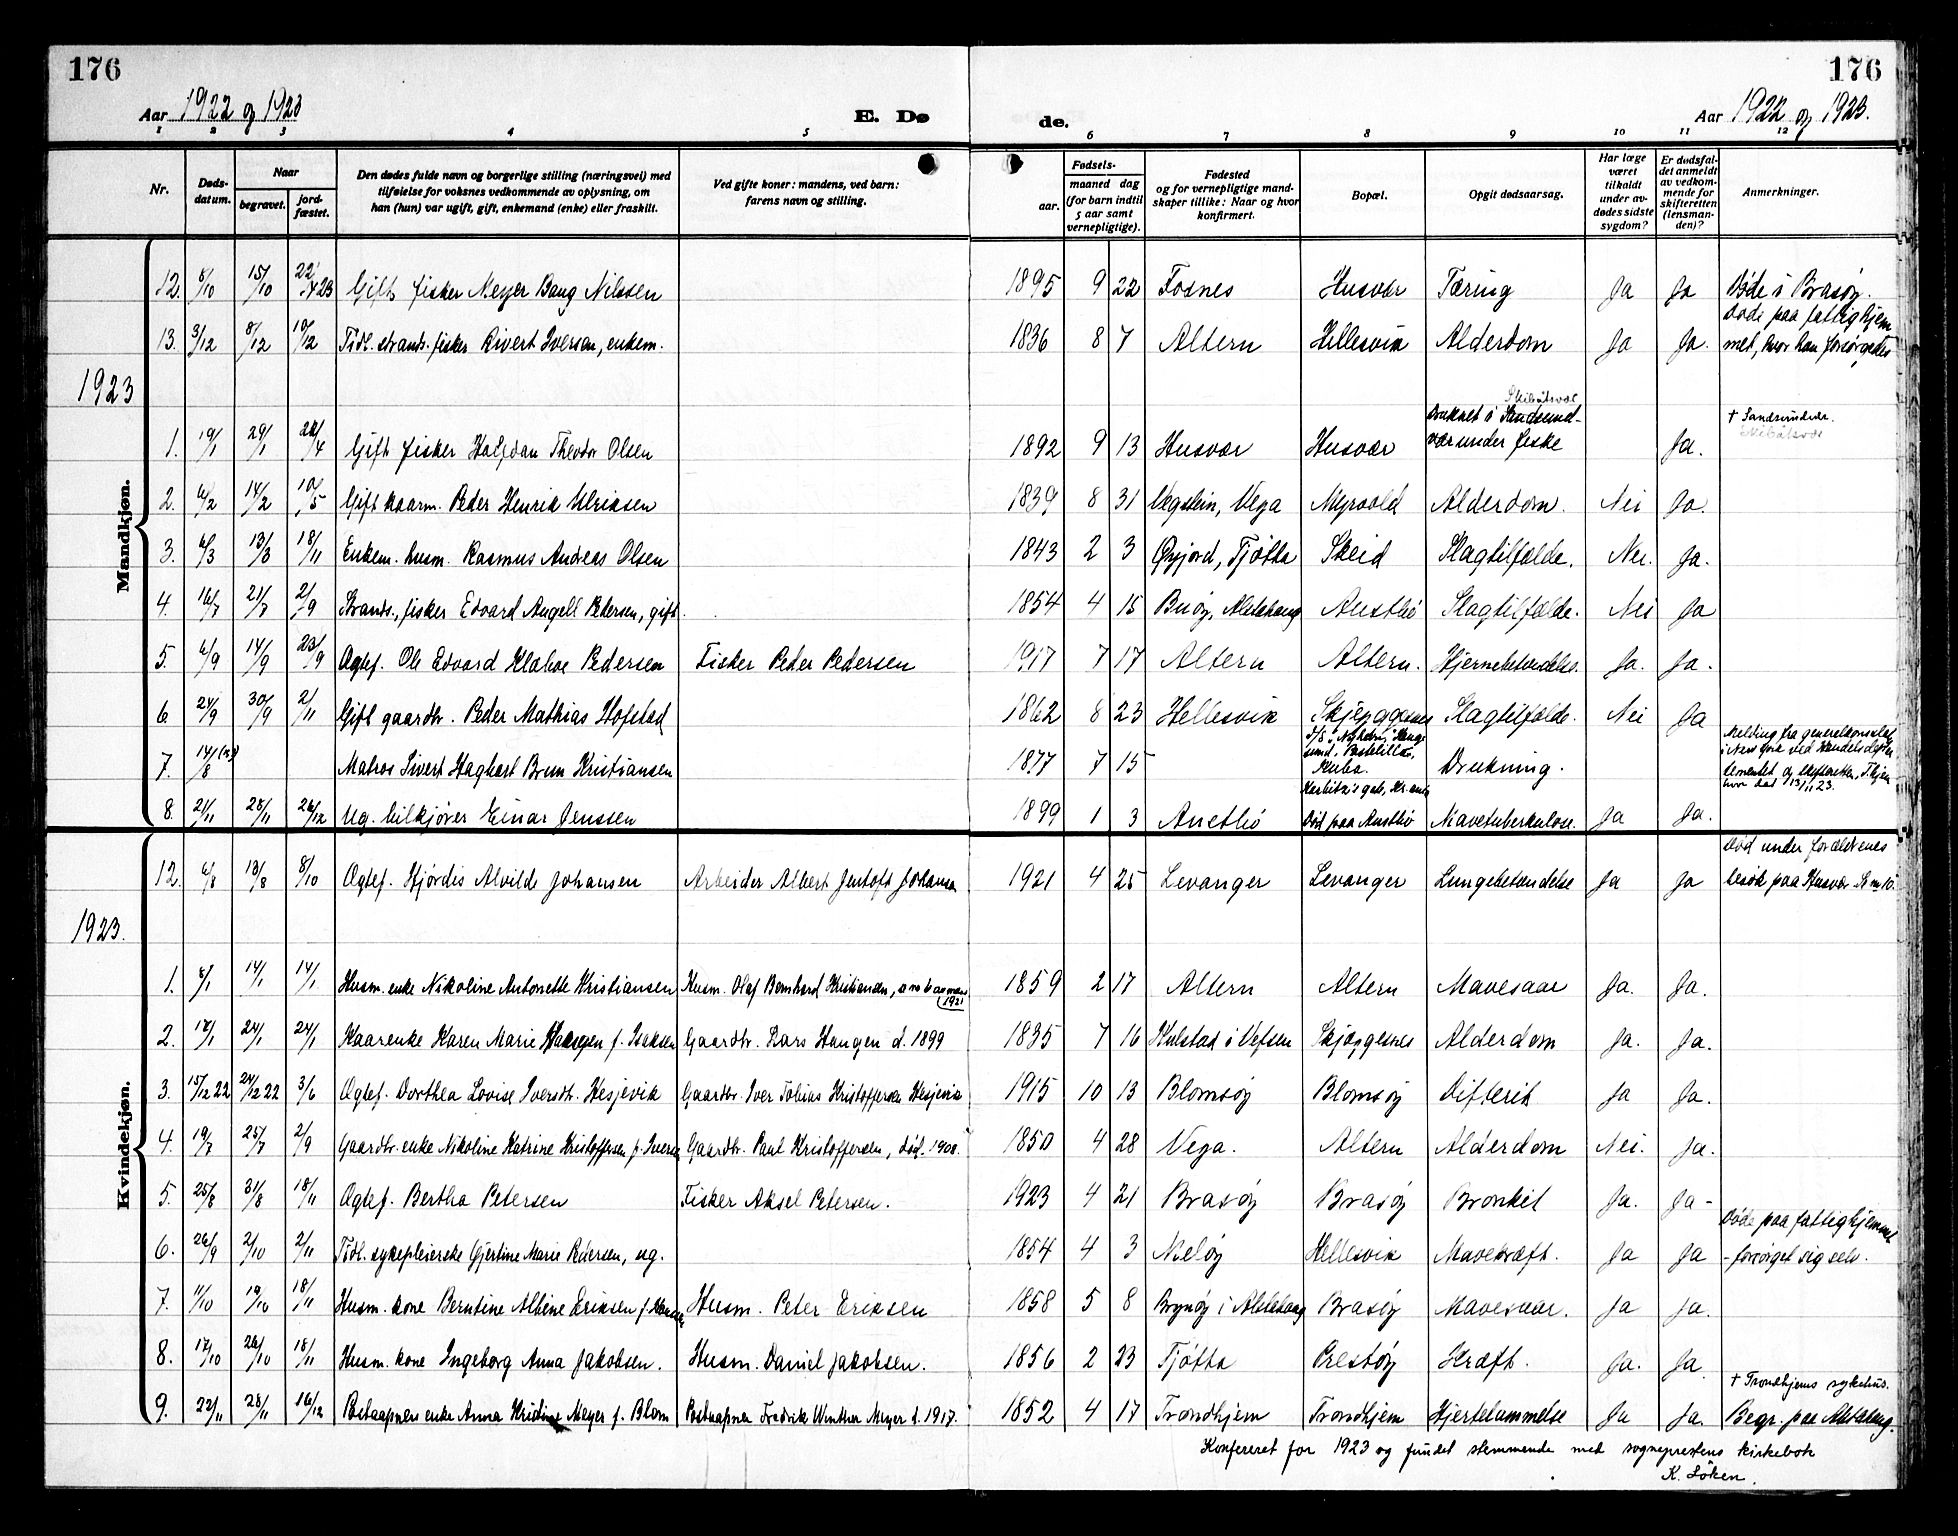 176
176
Aar 1922 og 1923
E. Dø
de.
Aar 1922 og 1923.
1 2 3 4 5 6 7 8 9 10 11 12
Nr.
Døds-
datum.
Naar
begravet.
jord-
fæstet.
Den dødes fulde navn og borgerlige stilling (næringsvei) med
tilføielse for voksnes vedkommende av oplysning, om
han (hun) var ugift, gift, enkemand (enke) eller fraskilt.
Ved gifte koner: mandens, ved barn:
farens navn og stilling.
Fødsels-
aar.
maaned dag
(for barn indtil
5 aar samt
vernepligtige).
Fødested
og for vernepligtige mand-
skaper tillike: Naar og hvor
konfirmert.
Bopæl.
Opgit dødsaarsag.
Har læge
været
tilkaldt
under av-
dødes sidste
sygdom?
Er dødsfal-
det anmeldt
av vedkom-
mende for
skifteretten
(lensman-
den)?
Anmerkninger.
12. 8/10 15/10 22/4 23 Gift fisker Meyer Bang Nilssen 1895 9 22 Fosnes Husvær Tæring Ja Ja Døde i Brasøy.
13. 3/12 8/12 10/12 Tidl. strands. fisker Sivert Iversen, enkem. 1836 8 7 Altern Hellesvik Alderdom Ja Ja. Døde paa fattighjem
met, hvor han forsørgedes
1923
Mandkjøn.
1. 19/1 29/1 22/4 Gift fisker Halfdan Theodor Olsen 1892 9 13 Husvær Husvær Druknet i Sandsund-
Skibåtsvær
vær under fiske Ja. + Sandsundvær.
Skibåtsvær
2. 6/2 14/2 10/5 Gift kaarm. Peder Henrik Ulriksen 1839 8 31 Vegstein, Vega Myrvold Alderdom. Nei Ja.
3. 6/3 13/3 18/11 Enkem. husm. Rasmus Andreas Olsen 1843 2 3 Øxfjord, Tjøtta Skeid Slagtilfælde. Nei. Ja.
4. 16/7 21/7 2/9 Strands., fisker Edvard Angell Petersen, gift. 1854 4 15 Buøy, Alstahaug Austbø Slagtilfælde. Nei Ja
5. 6/9 14/9 23/9 Ægtef. Ole Edvard Klæboe Pedersen Fisker Peder Pedersen 1917 7 17 Altern Altern. Hjernebetændelse. Ja. Ja.
6 24/9 30/9 2/11 Gift gaardbr. Peder Mathias Hofstad 1862 8 23 Hellesvik Skjeggesnes Slagtilfælde. Nei Ja
7. 14/8 Matros Sivert Haghart Brun Kristiansen 1877 7 15 Kuba. Drukning. Melding fra generalkonsulat
i New York ved Handelsdepar
tementet og skifteretten, T.hjem
8. 21/11 28/11 26/12 Ug. bilkjører Einar Jenssen 1899 1 3 Austbø Død paa Austbø Mavetuberkulose. Ja Ja.
12. 6/8 13/8 8/10 Ægtef. Hjørdis Alvilde Johansen Arbeider Albert Jentoft Johansen 1921 4 25 Levanger Levanger Lungebetændelse Ja Ja Død under forældrenes
besøk paa Husvær
1923.
Kvindekjøn.
1. 8/1 14/1 14/1 Husm. enke Nikoline Antonette Kristiansen Husm. Olaf Bernhard Kristiansen,
1921 1859 2 17 Altern Altern Mavesaar Ja. Ja.
2. 17/1 24/1 24/1 Kaarenke Karen Marie Haugen f. Isaksen Gaardbr. Lars Haugen d. 1899 1835 7 16 Kulstad i Vefsen Skjæggesnes Alderdom Ja. Ja.
3. 15/12 22 24/12 22 3/6 Ægtef. Dorthea Lovise Iversdtr. Hesjevik Gaardbr. Iver Tobias Kristoffersen Hesjevik 1915 10 13 Blomsøy Blomsøy Difterit Ja Ja.
4. 19/7 25/7 2/9 Gaardbr. enke Nikoline Katrine Kristoffersen f. Iversen Gaardbr. Paul Kristoffersen, død. 1908. 1850 4 28 Vega. Altern Alderdom Nei. Ja.
5. 25/8 31/8 18/11 Ægtef. Bertha Petersen Fisker Aksel Petersen. 1923 4 21 Brasøy Brasøy Bronkit Ja. Ja-
6. 26/9 2/10 2/11 Tidl. sykepleierske Gjertine Marie Pedersen, ug. 1854 4 3 Meløy Hellesvik Mavekræft. Ja Ja Døde paa fattighjemmet
-forsørget sig selv.
7. 11/10 19/10 18/11 Husm. kone Berntine Albine Eriksen f. Hansen Husm. Peter Eriksen 1858 5 8 Brynøy i Alstahaug Brasøy Mavesaar. Ja Ja.
8. 17/10 26/10 18/11 Husm. kone Ingeborg Anna Jakobsen. Husm. Daniel Jakobsen. 1856 2 23 Tjøtta Prestøy Kræft. Ja. Ja.
9. 22/11 28/11 16/12 Postaapner enke Anna Kristine Meyer f. Blom Postaapner Fredrik Winther Meyer d. 1917. 1852 4 17 Trondhjem Trondhjem Hjertelammelse Ja Ja. + Trondhjems sykehus.
Begr. paa Alstahaug.
Konferert for 1923 og fundet stemmende med sogneprestens kirkebok
K. Löken.